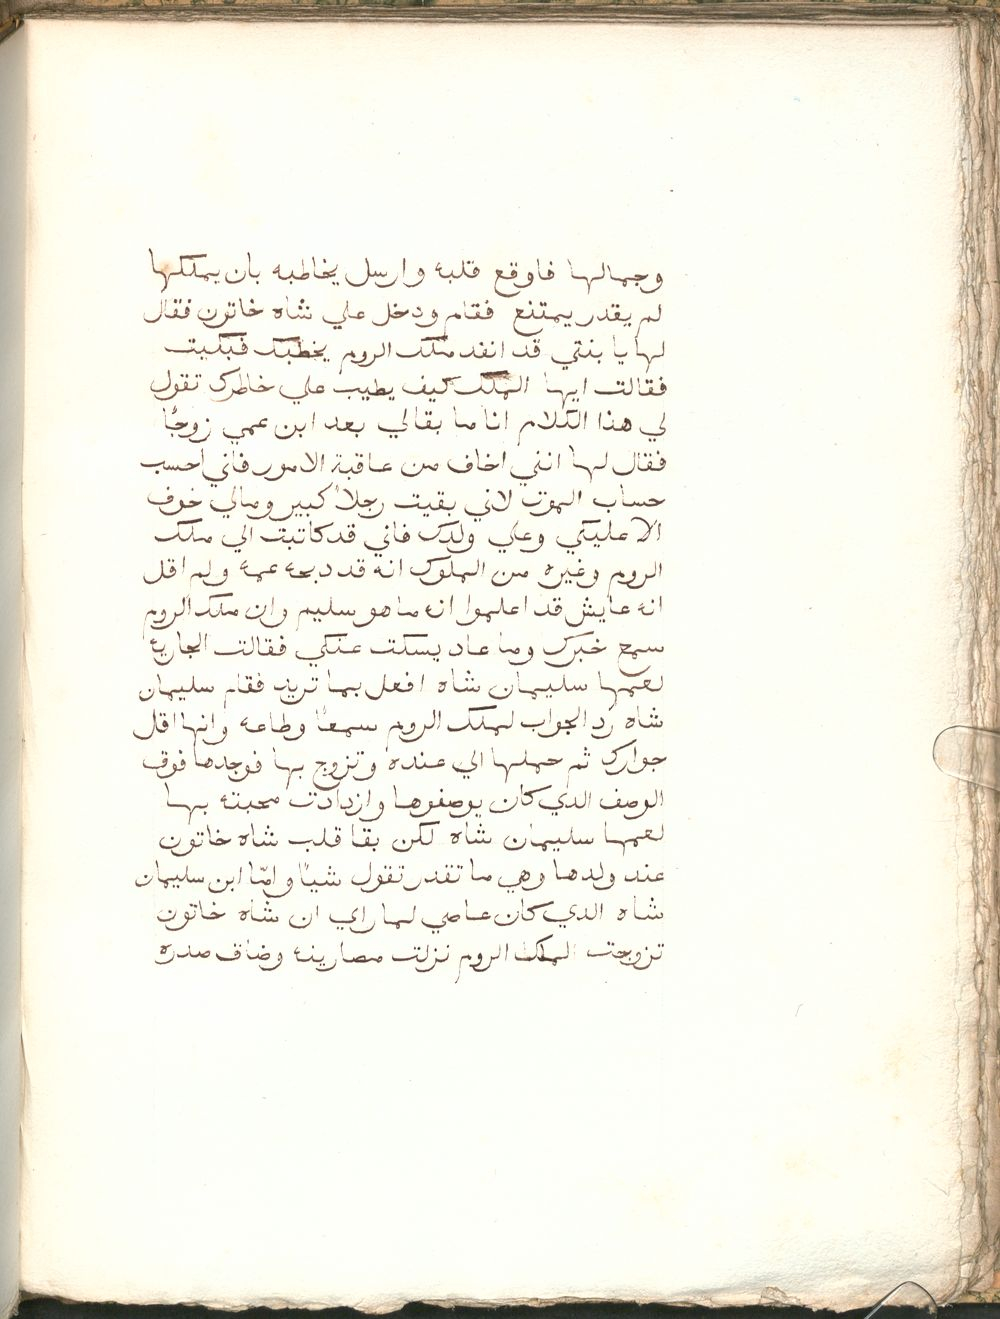 وجمالها فاوقع قلبه وارسل يخاطبه بان يملكها
لم يقدر يمتنع فقام ودخل علي شاه خاتون فقال
لها يا بنتي قد انفد ملك الروم يخطبك فبكيت
فقالت ايها الملك كيف يطيب علي خاطرك تقول
لي هذا الكلام انا ما بقالي بعد ابن عمي زوجًا
فقال لها انني اخاف من عاقبة الامور فاني احسب
حساب الموت لاني بقيت رجلاً كبير ومالي خوف
الا عليكي وعلي ولدك فاني قد كاتبت الي ملك
الروم وغيره من الملوك انه قد دبحه عمه ولم اقل
انه عايش قد اعلموا انه ما هو سليم وان ملك الروم
سمع خبرك وما عاد يسكت عنكي فقالت الجارية
لعمها سليمان شاه افعل بما تريد فقام سليمان
شاه رد الجواب لملك الروم سمعًا وطاعه وانها اقل
جوارك ثم حملها الي عنده وتزوج بها فوجدها فوق
الوصف الدي كان يوصفوها وازدادت محبته بها
لعمها سليمان شاه لكن بقا قلب شاه خاتون
عند ولدها وهي ما تقدر تقول شياً وامّا ابن سليمان
شاه الدي كان عاصي لما راي ان شاه خاتون
تزوجت الملك الروم نزلت مصارينه وضاق صدره